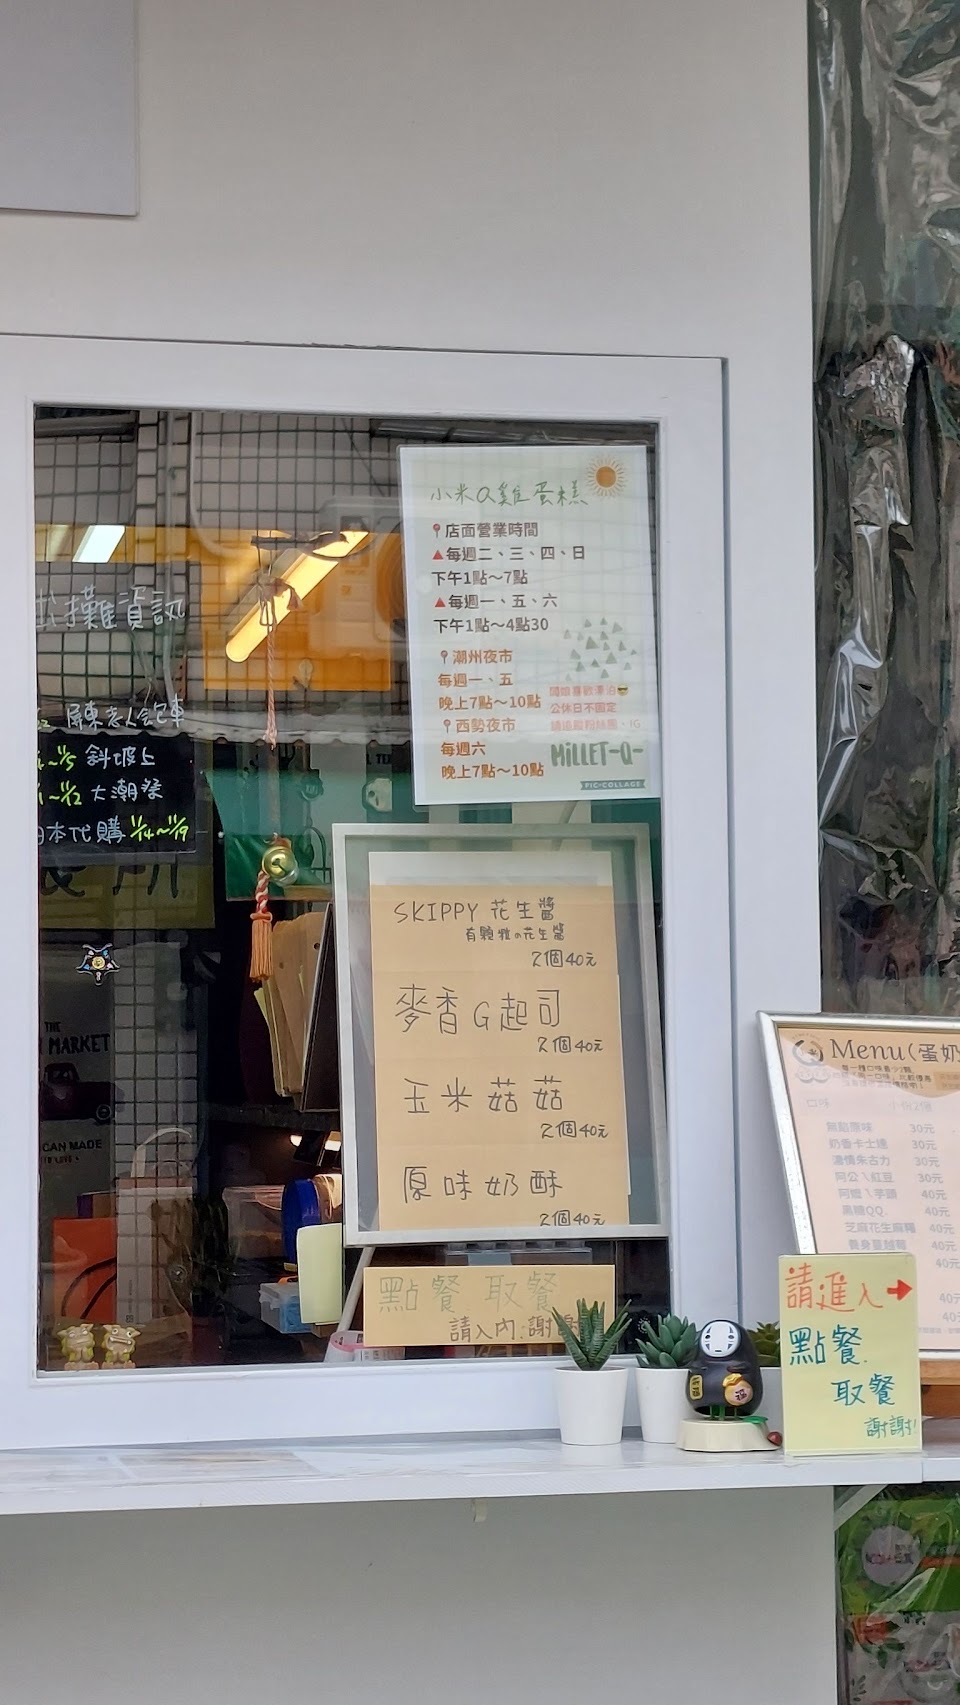 小米Q雞蛋糕
店面營業時間
▲每週二、三、四、日
下午1點～7點
▲每週一、五、六
下午1點～4點30
潮州夜市
每週一、五
晚上7點～10點
西勢夜市
每週六
晚上7點～10點
闆娘喜歡漂泊
公休日不固定
請追蹤粉絲團、IG
MILLET-Q-
PIC•COLLAGE
攤資訊
屏東老人会包車
~11/5 斜坡上
~11/12 大潮粢
日本代購 11/14~11/19
THE
MARKET
CAN MADE
SKIPPY 花生醬
有顆粒の花生醬
2個40元
麥香G起司
2個40元
玉米菇菇
2個40元
原味奶酥
2個40元
點餐 取餐
請入內.謝謝
Menu(蛋奶
口味
無餡原味 30元
奶香卡士達 30元
濃情朱古力 30元
阿公\紅豆 30元
阿嬤\芋頭 40元
黑糖QQ 40元
芝麻花生麻糬 40元
40元
40元
請進入➔
點餐.
取餐
謝謝!